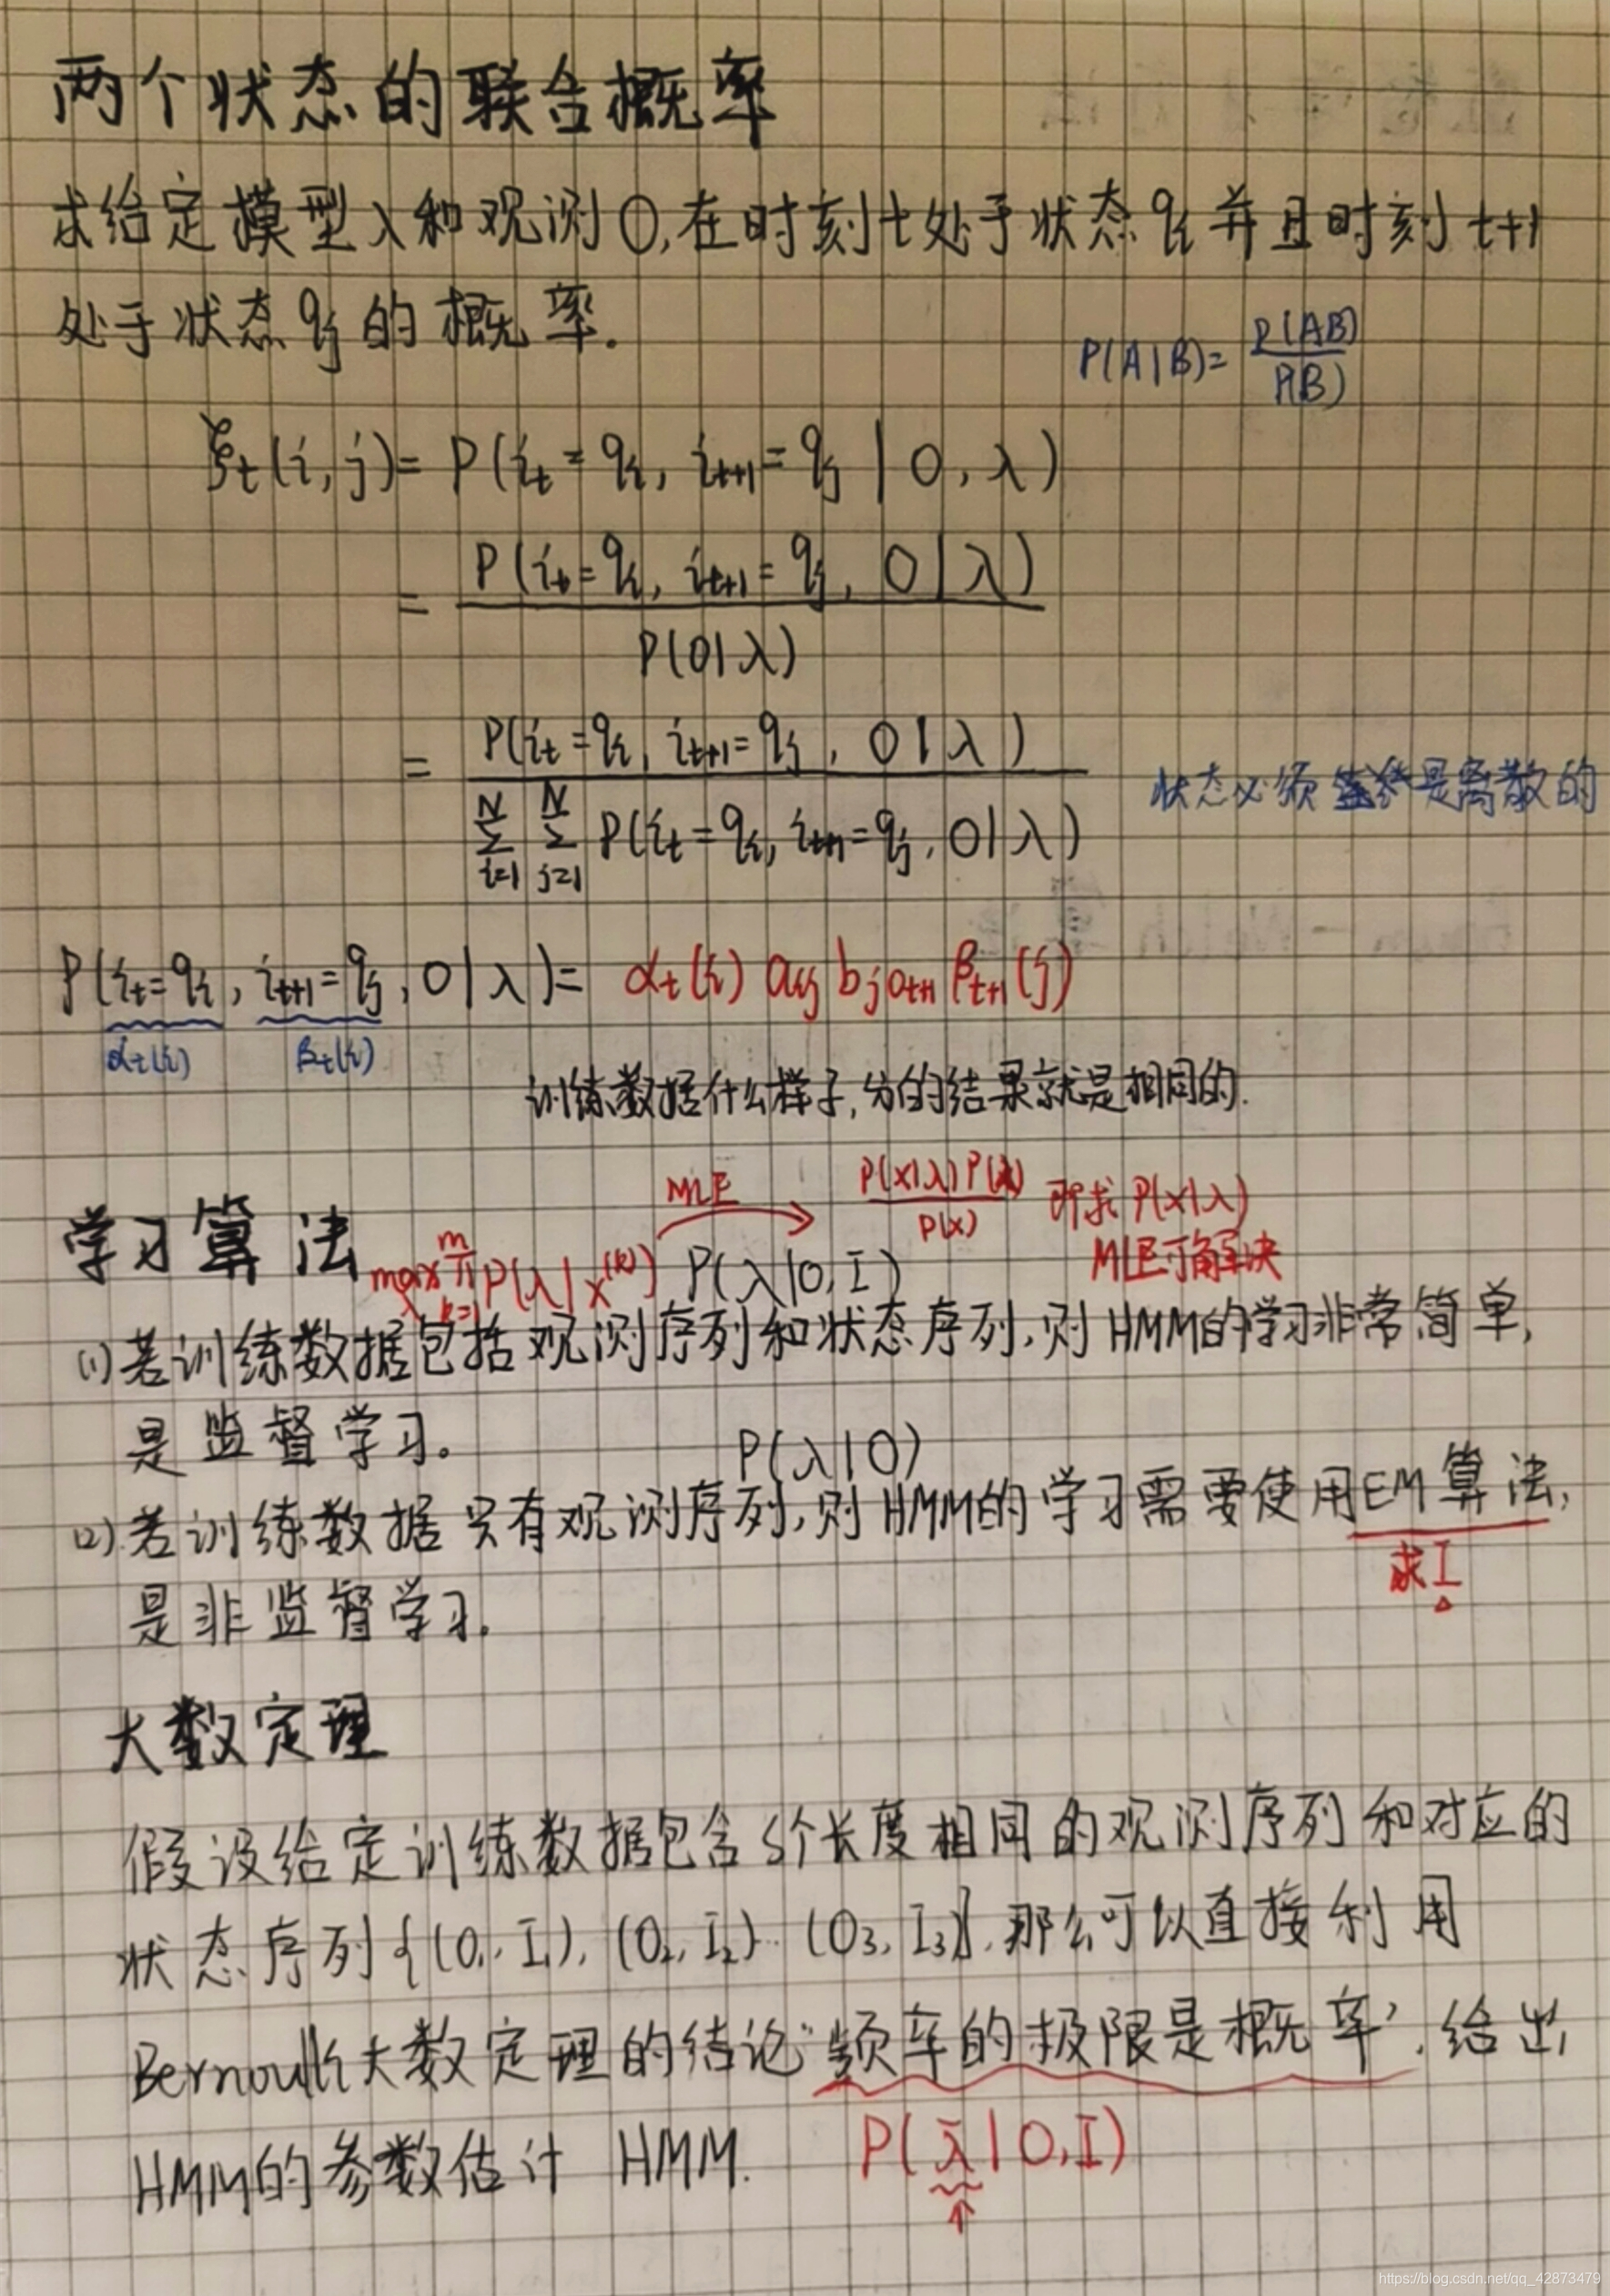 两个状态的联合概率
求给定模型λ和观测O,在时刻t处于状态qi并且时刻t+1
处于状态qj的概率.
P(A|B)= P(AB)/P(B)
ξt(i,j)= P(it=qi, it+1=qj | O, λ)
= P(it=qi, it+1=qj, O|λ) / P(O|λ)
= P(it=qi, it+1=qj, O|λ) / ∑i=1N ∑j=1N P(it=qi, it+1=qj, O|λ)
状态必须 是离散的
P(it=qi, it+1=qj, O|λ)= αt(i) aij bjot+1 βt+1(j)
αt(i) βt(i)
训练数据什么样子,分的结果就是相同的.
MLE P(x|λ)P(λ)/P(x) 即求 P(x|λ)
学习算法 maxλ ∏k=1m P(λ|x(k)) P(λ|O,I) MLE可解决
(1)若训练数据包括观测序列和状态序列,则HMM的学习非常简单,
是监督学习。
P(λ|O)
(2).若训练数据只有观测序列,则HMM的学习需要使用EM算法,
求I
是非监督学习.
大数定理
假设给定训练数据包含S个长度相同的观测序列和对应的
状态序列{(O1,I1),(O2,I2)…(O3,I3)},那么可以直接利用
Bernoulli大数定理的结论“频率的极限是概率”,给出
HMM的参数估计 HMM. P(λ|O,I)
https://blog.csdn.net/qq_42873479